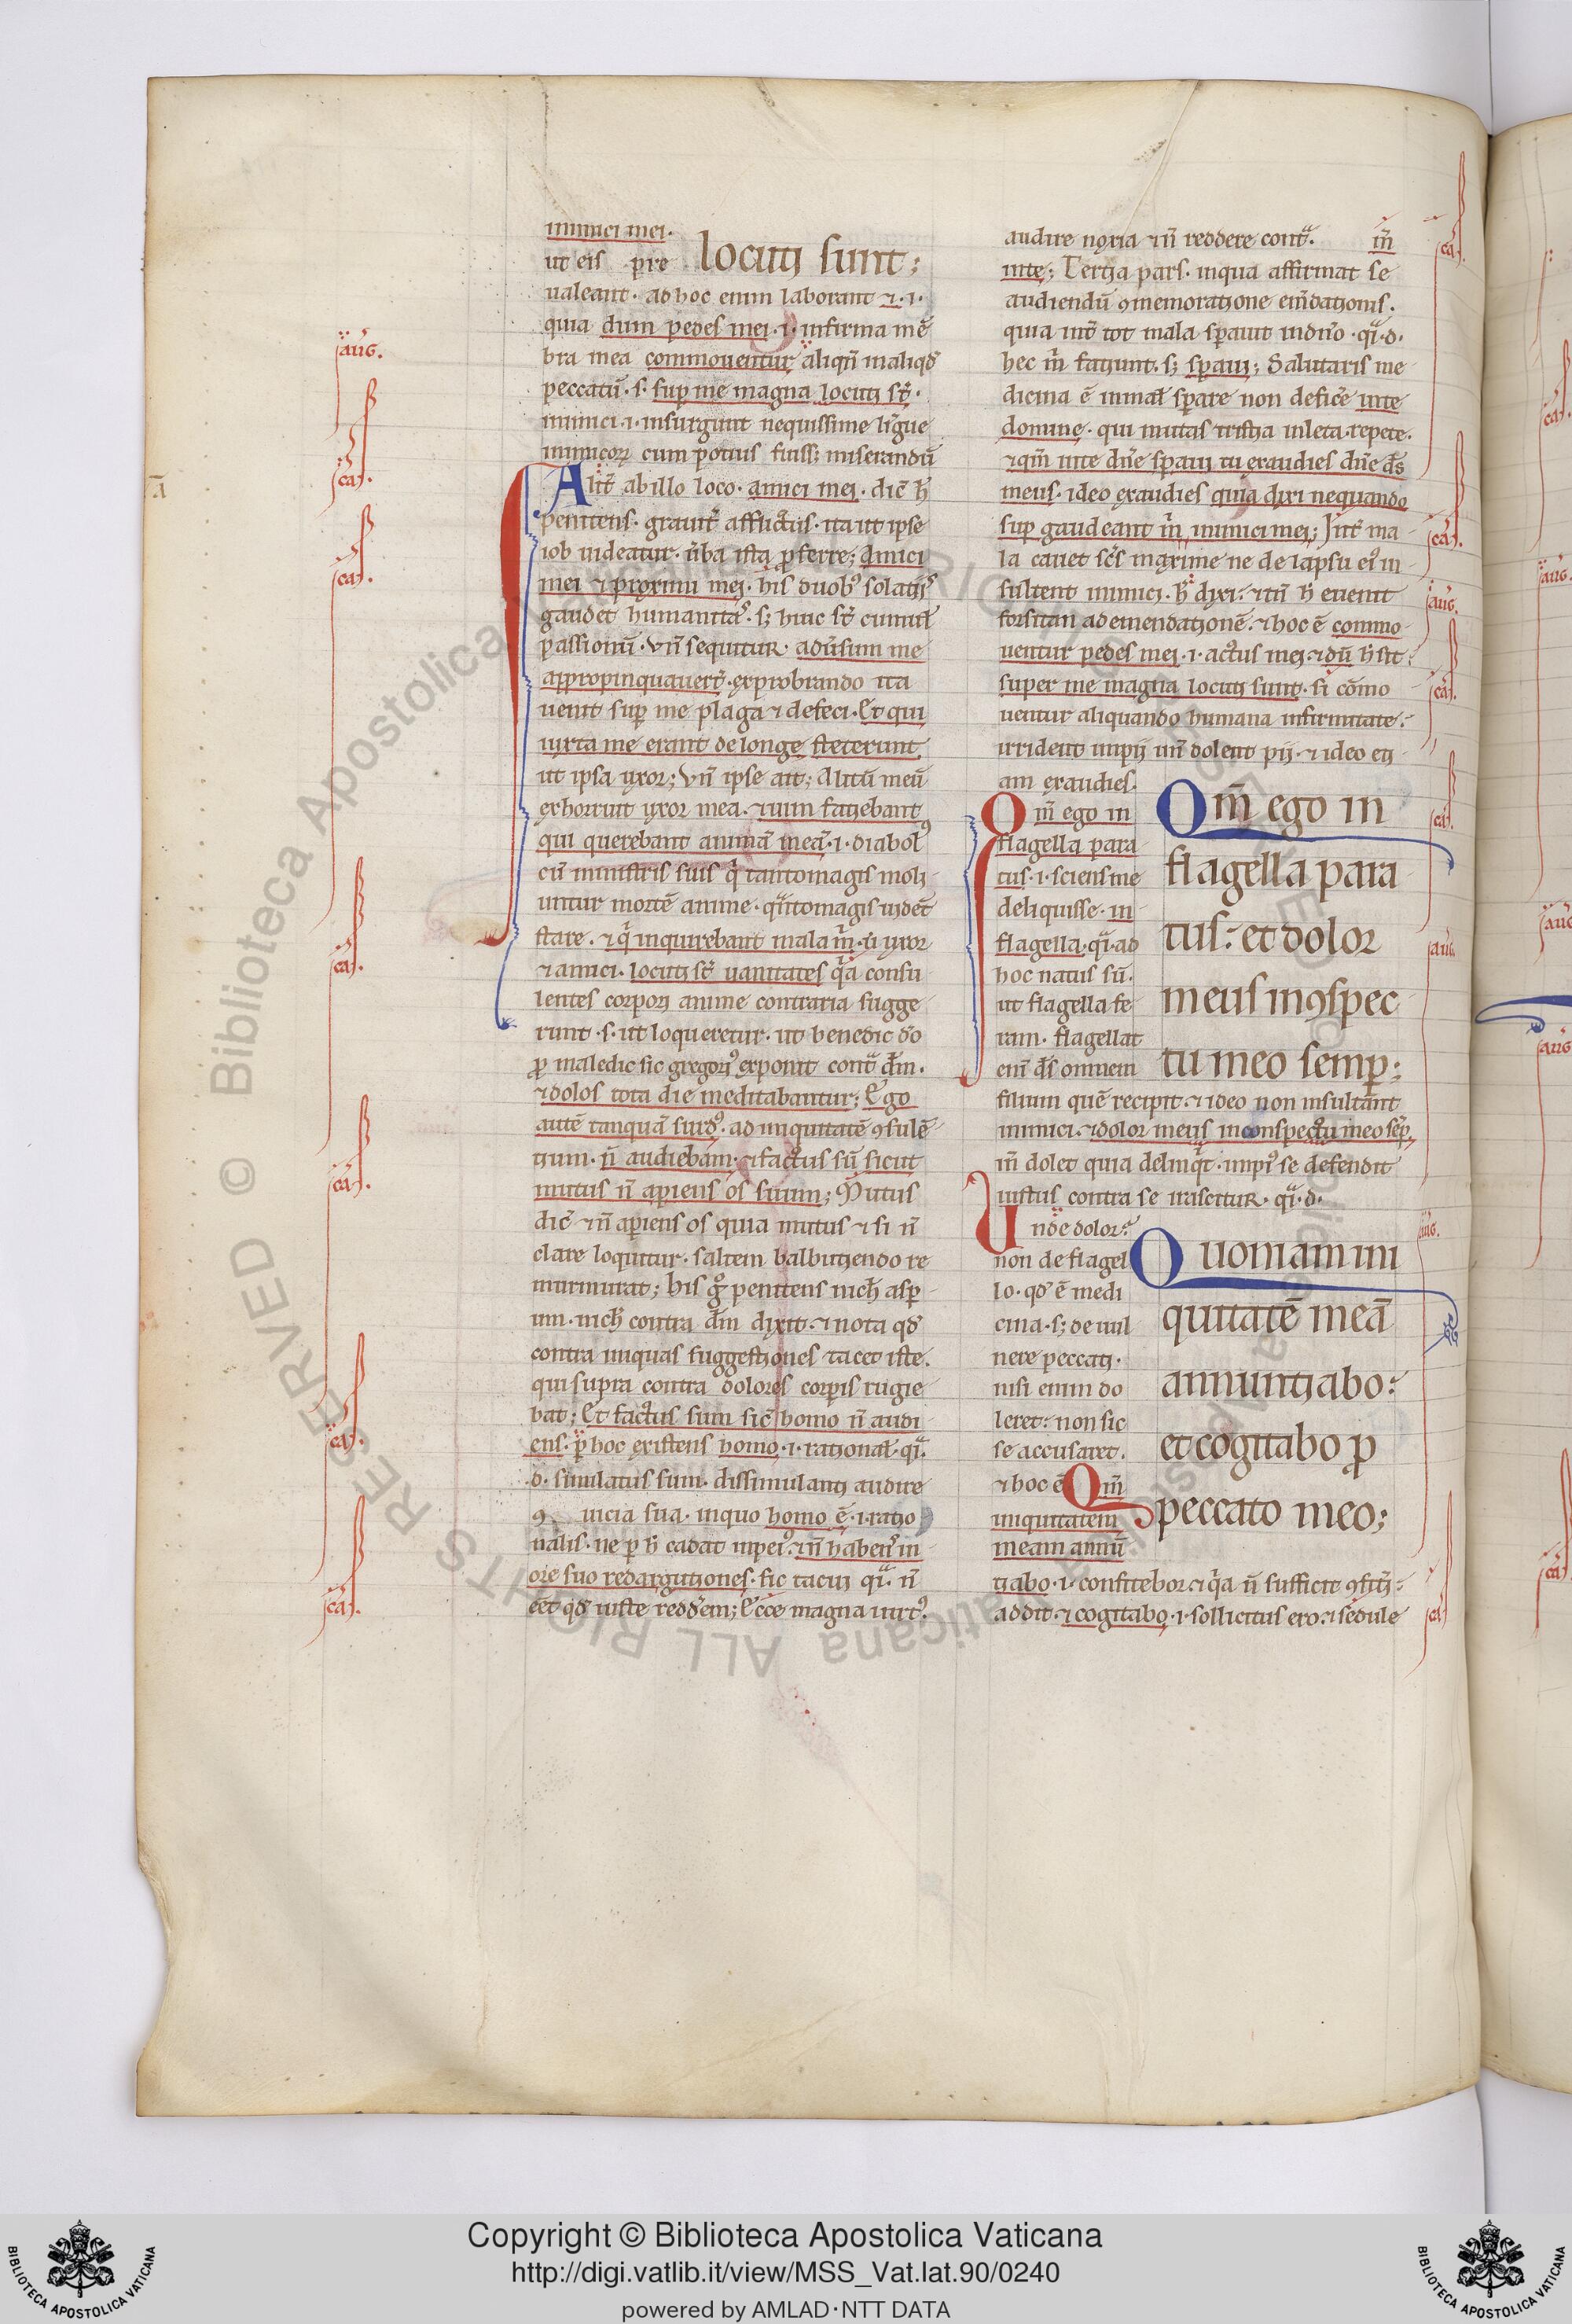 inimici mei.
ut eis p̄re locuti sunt;
ualeant. ad hoc enim laborant ⁊.i.
quia dum pedes mei .i. infirma mē
bra mea commouentur aliqn̄ in aliqd̓
peccatū .s. sup̱ me magna locuti st̄.
inimici .i. insurgunt nequissime ligue
inimicoꝝ cum potius fuiss; miserandū
Alit̄ ab illo loco. amici mei. dic̄ h̄
penitens. grauit̄ afflictus. ita ut ipse
iob uideatur. ūba ista ꝓferre; Amici
mei ⁊ proximi mei. his duobꝰ solatiis
gaudet humanitas. s; huic st̄ cumul̄
passionū. Vn̄ sequitur. adūsum me
appropinquauert̄. exprobrando ita
uenit sup̱ me plaga ⁊ defeci. Et qui
iuxta me erant de longe steterunt
ut ipsa uxor; Vn̄ ipse ait; Alitū meū
exhorruit uxor mea. ⁊ uim faciebant
qui querebant animā meā .i. diabolꝰ
cū ministris suis q̄ tantomagis moli-
untur mortē anime. qͣntomagis uidēt
stare. ⁊ q̄ inquirebant mala m̄. ut uxor
⁊ amici. locuti st̄ uanitates qͥa consu
lentes corpori anime contraria sugge
runt .s. ut loqueretur. ut benedic dō
ꝓ maledic sic gregoꝰ exponit cont͛ dm̄.
⁊ dolos tota die meditabantur; Ego
autē tanquā surdꝰ. ad iniquitatē ꝯsulē
tium. n̄ audiebam. ⁊ factus sū sicut
mutus n̄ aperiens os suum; Mutus
dic̄ ⁊ n̄ aperiens os quia mutus ⁊ si n̄
clare loquitur. saltem balbutiendo re
murmurat; his g̊ penitens nich̄ asp̱
um. nich̄ contra dm̄ dixit. ⁊ nota qd̓
contra iniquas suggestiones tacet iste.
qui supra contra dolores corporis rugie
bat; Et factus sum sic̄ homo n̄ audi
ens. p̱ hoc existens homo .i. rational̄. qͣ.
d. similatus sum. dissimulanti audire
ꝯ uicia sua. in quo homo ē .i. ratio
nalis. ne p̱ h̄ cadat inpeiꝰ. ⁊ n̄ habens in
ore suo redargutiones. sic tacui qͣ. n̄
eēt qd̓ iuste redd̓em; Ecce magna uirtꝰ.
audire noxia ⁊ n̄ reddere cont͛. m̄
inte; Tertia pars. in qua affirmat se
audiendū ꝯmemoratione em̄dationis.
quia int̄ tot mala sꝑauit in dn̄o. qͣ.d.
hec m̄ faciunt. s; sꝑaui; Salutaris me
dicina ē in mal̄ sꝑare non defic̄e inte
domine. qui mutas tristia in leta. repete.
⁊ qm̄ inte dn̄e sꝑaui tu exaudies dn̄e ds̄
meus. ideo exaudies quia dixi nequando
sup̱ gaudeant m̄ inimici mei; Int̄ ma
la cauet sc̄s maxime ne de lapsu eiꝰ in
sultent inimici. h̄ dixi. ⁊ tn̄ h̄ euenit
forsitan ad emendationē. ⁊ hoc ē commo
uentur pedes mei .i. actus mei. ⁊ dū h̄ sit
super me magna locuti sunt. si cōmo
uentur aliquando humana infirmitate.
irrident impii un̄ dolent pii. ⁊ ideo eti
am exaudies.
Qm̄ ego in
flagella para
tus: et dolor
meus in ꝯspec
tu meo semp̱;
Qm̄ ego in
flagella para
tus .i. sciens me
deliquisse. in
flagella. qͣ. ad
hoc natus sū.
ut flagella fe
ram. flagellat
eni ds̄ omnem
filium quē recipit. ⁊ ideo non insultant
inimici. ⁊ dolor meus in conspectu meo sep̱.
m̄ dolet quia delinqͥt. impiꝰ se defendit
iustus contra se irascitur. qͣ.d.
Vnde dolor?
non de flagel
lo. qd̓ ē medi
cina. s; de uul
nere peccati.
nisi enim do
leret: non sic
se accusaret.
⁊ hoc ē Qm̄
iniquitatem
meam annū
Quoniam ini
quitatē meā
annuntiabo:
et cogitabo ꝓ
peccato meo;
tiabo .i. confitebor. ⁊ qͥa n̄ sufficit ꝯfiti:
addit. ⁊ cogitabo .i. sollicitus ero. ⁊ sedule
aug.
ca.
ca.
ca.
ca.
ca.
ca.
ca.
ca.
aug.
ca.
ca.
aug.
aug.
ca.
Copyright © Biblioteca Apostolica Vaticana
http://digi.vatlib.it/view/MSS_Vat.lat.90/0240
powered by AMLAD·NTT DATA
BIBLIOTECA APOSTOLICA VATICANA
BIBLIOTECA APOSTOLICA VATICANA
© Biblioteca Apostolica Vaticana ALL RIGHTS RESERVED